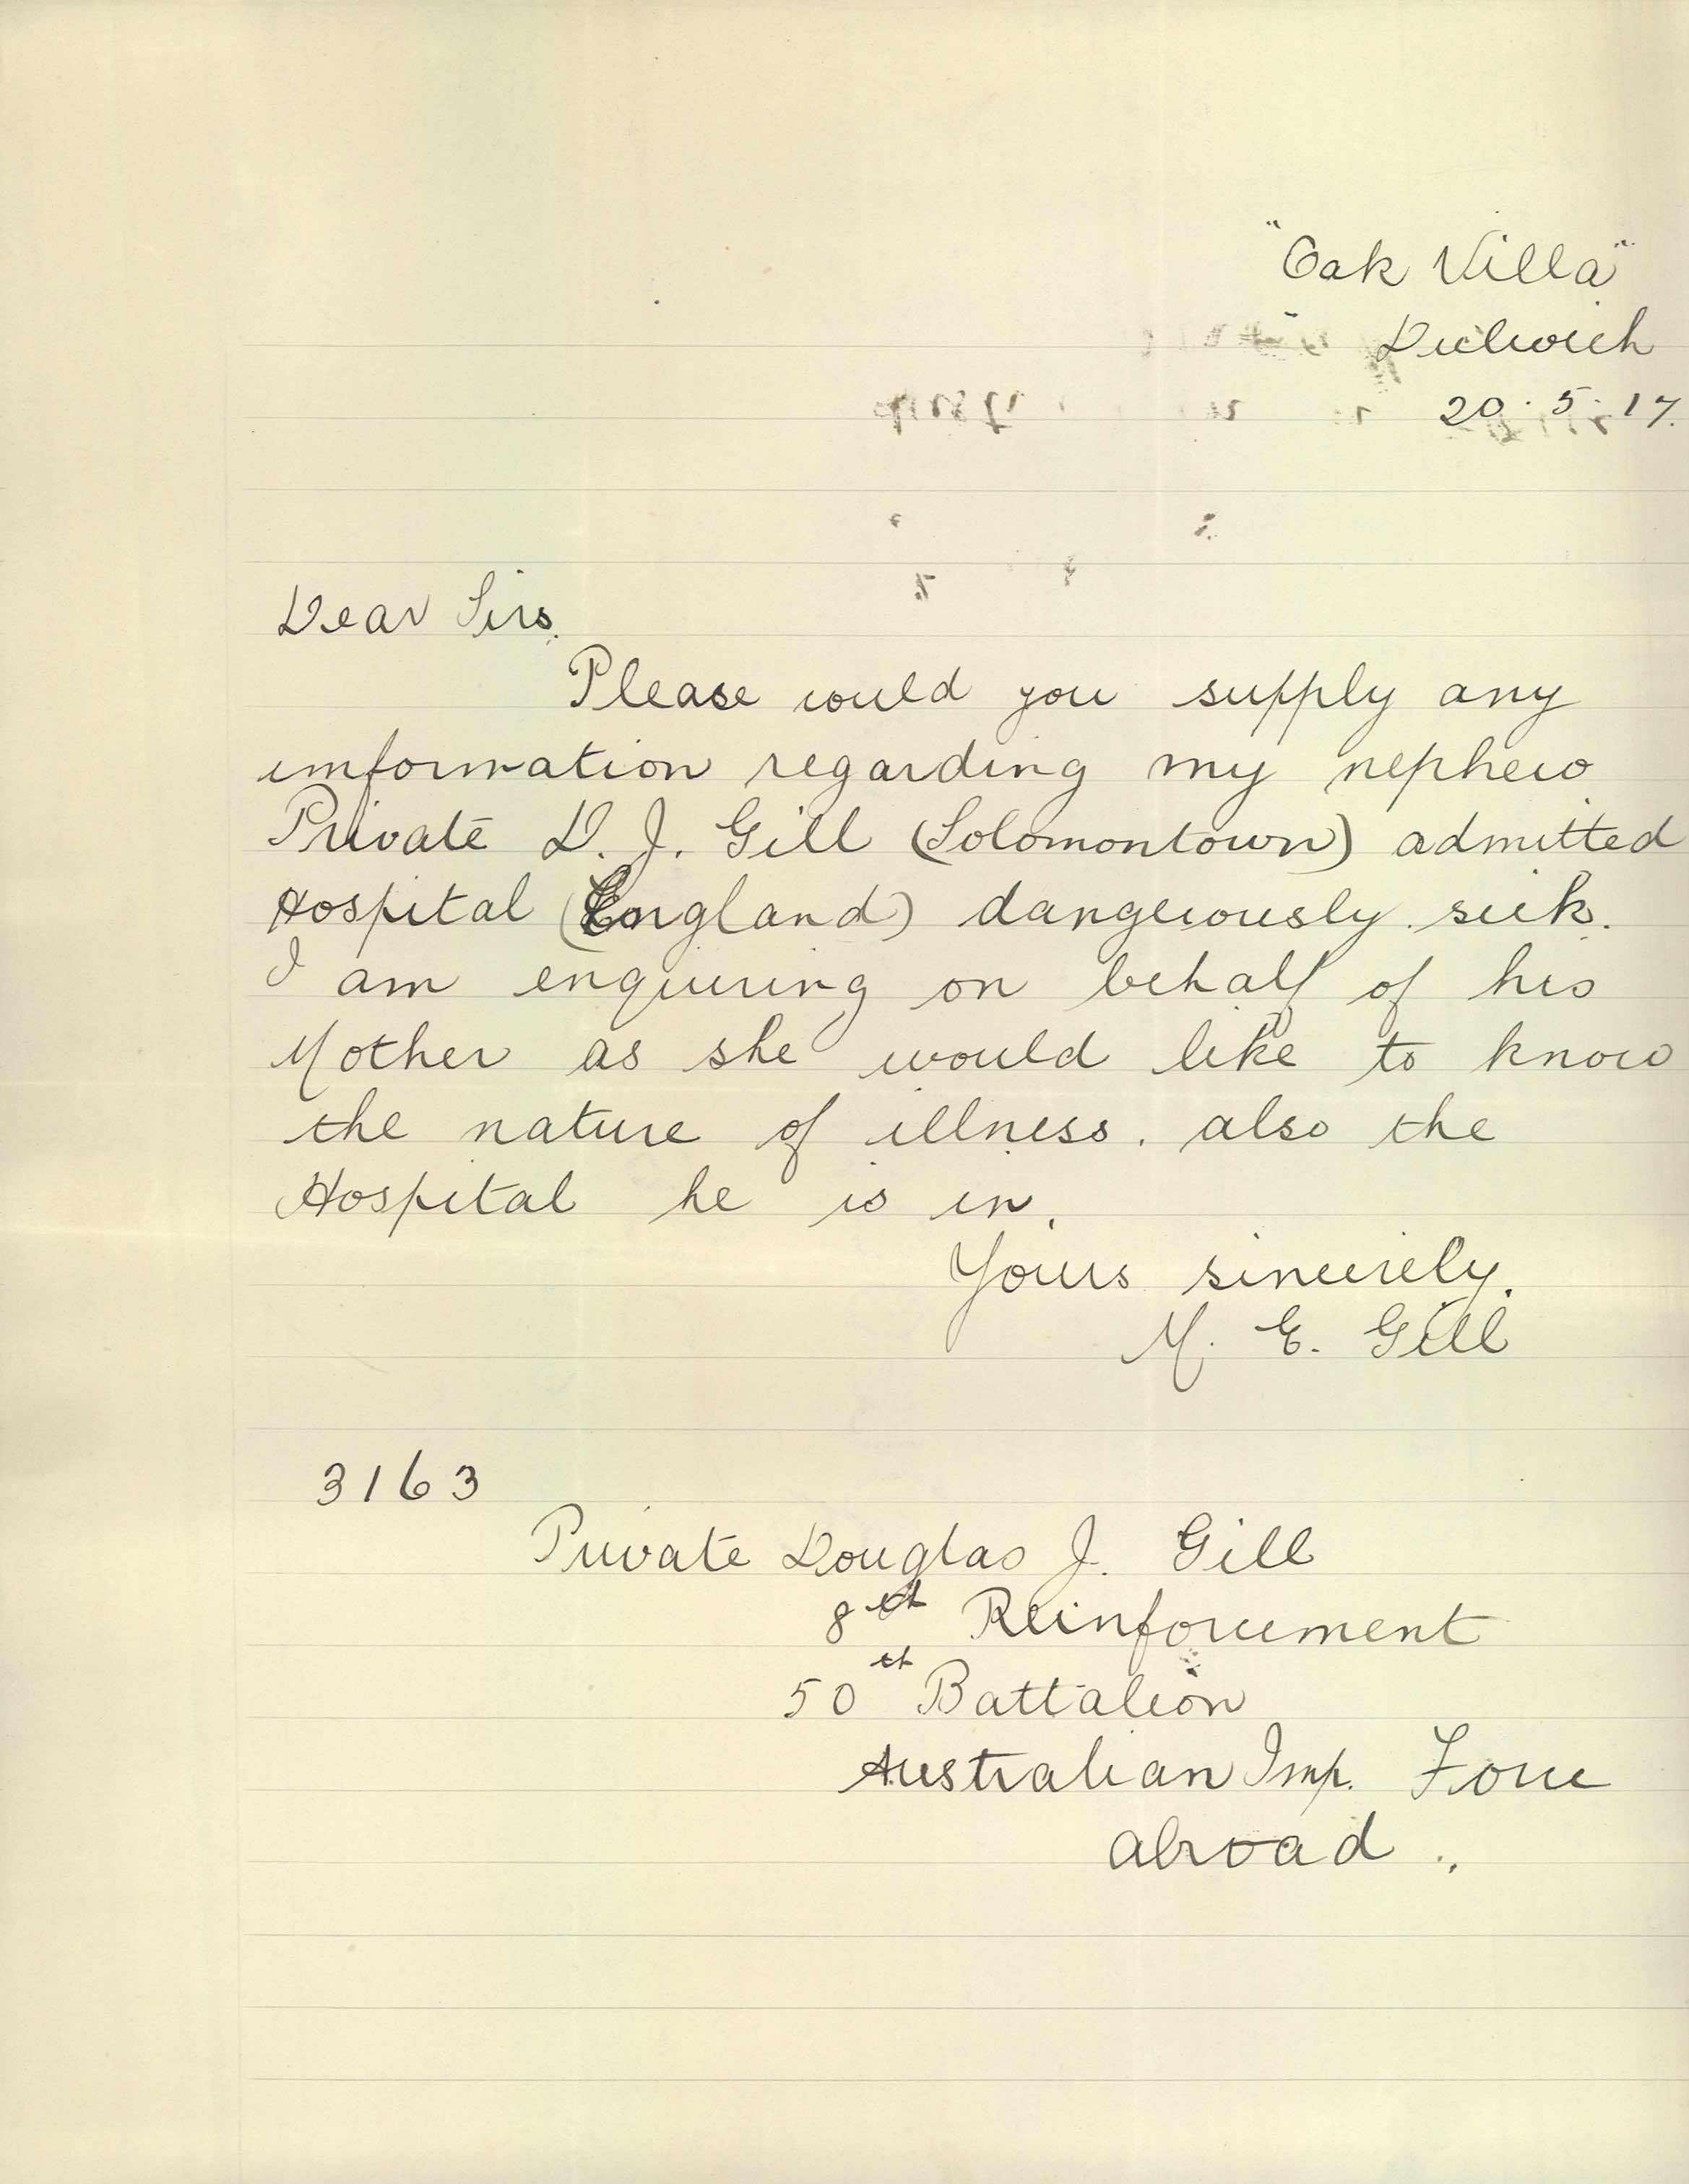 "Oak Villa"
Dulwich
20.5.17.
Dear Sirs.
Please could you supply any
imformation regarding my nephew
Private D. J. Gill (Solomontown) admitted
Hospital (England) dangerously sick.
I am enquiring on behalf of his
Mother as she would like to know
the nature of illness. also the
Hospital he is in.
Yours sincerely.
M. E. Gill
3163
Private Douglas J. Gill
8th Reinforcement
50th Battalion
Australian Imp. Force
abroad.